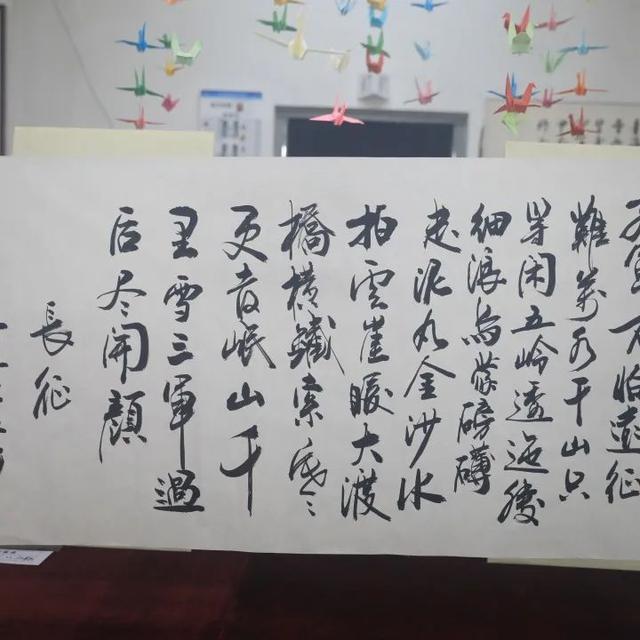 不怕遠征
難萬水千山只
等闲五岭逶迤腾
细浪烏蒙磅礴
走泥丸金沙水
拍雲崖暖大渡
橋横鐵索寒
更喜岷山千
里雪三軍過
后尽開顏
長征